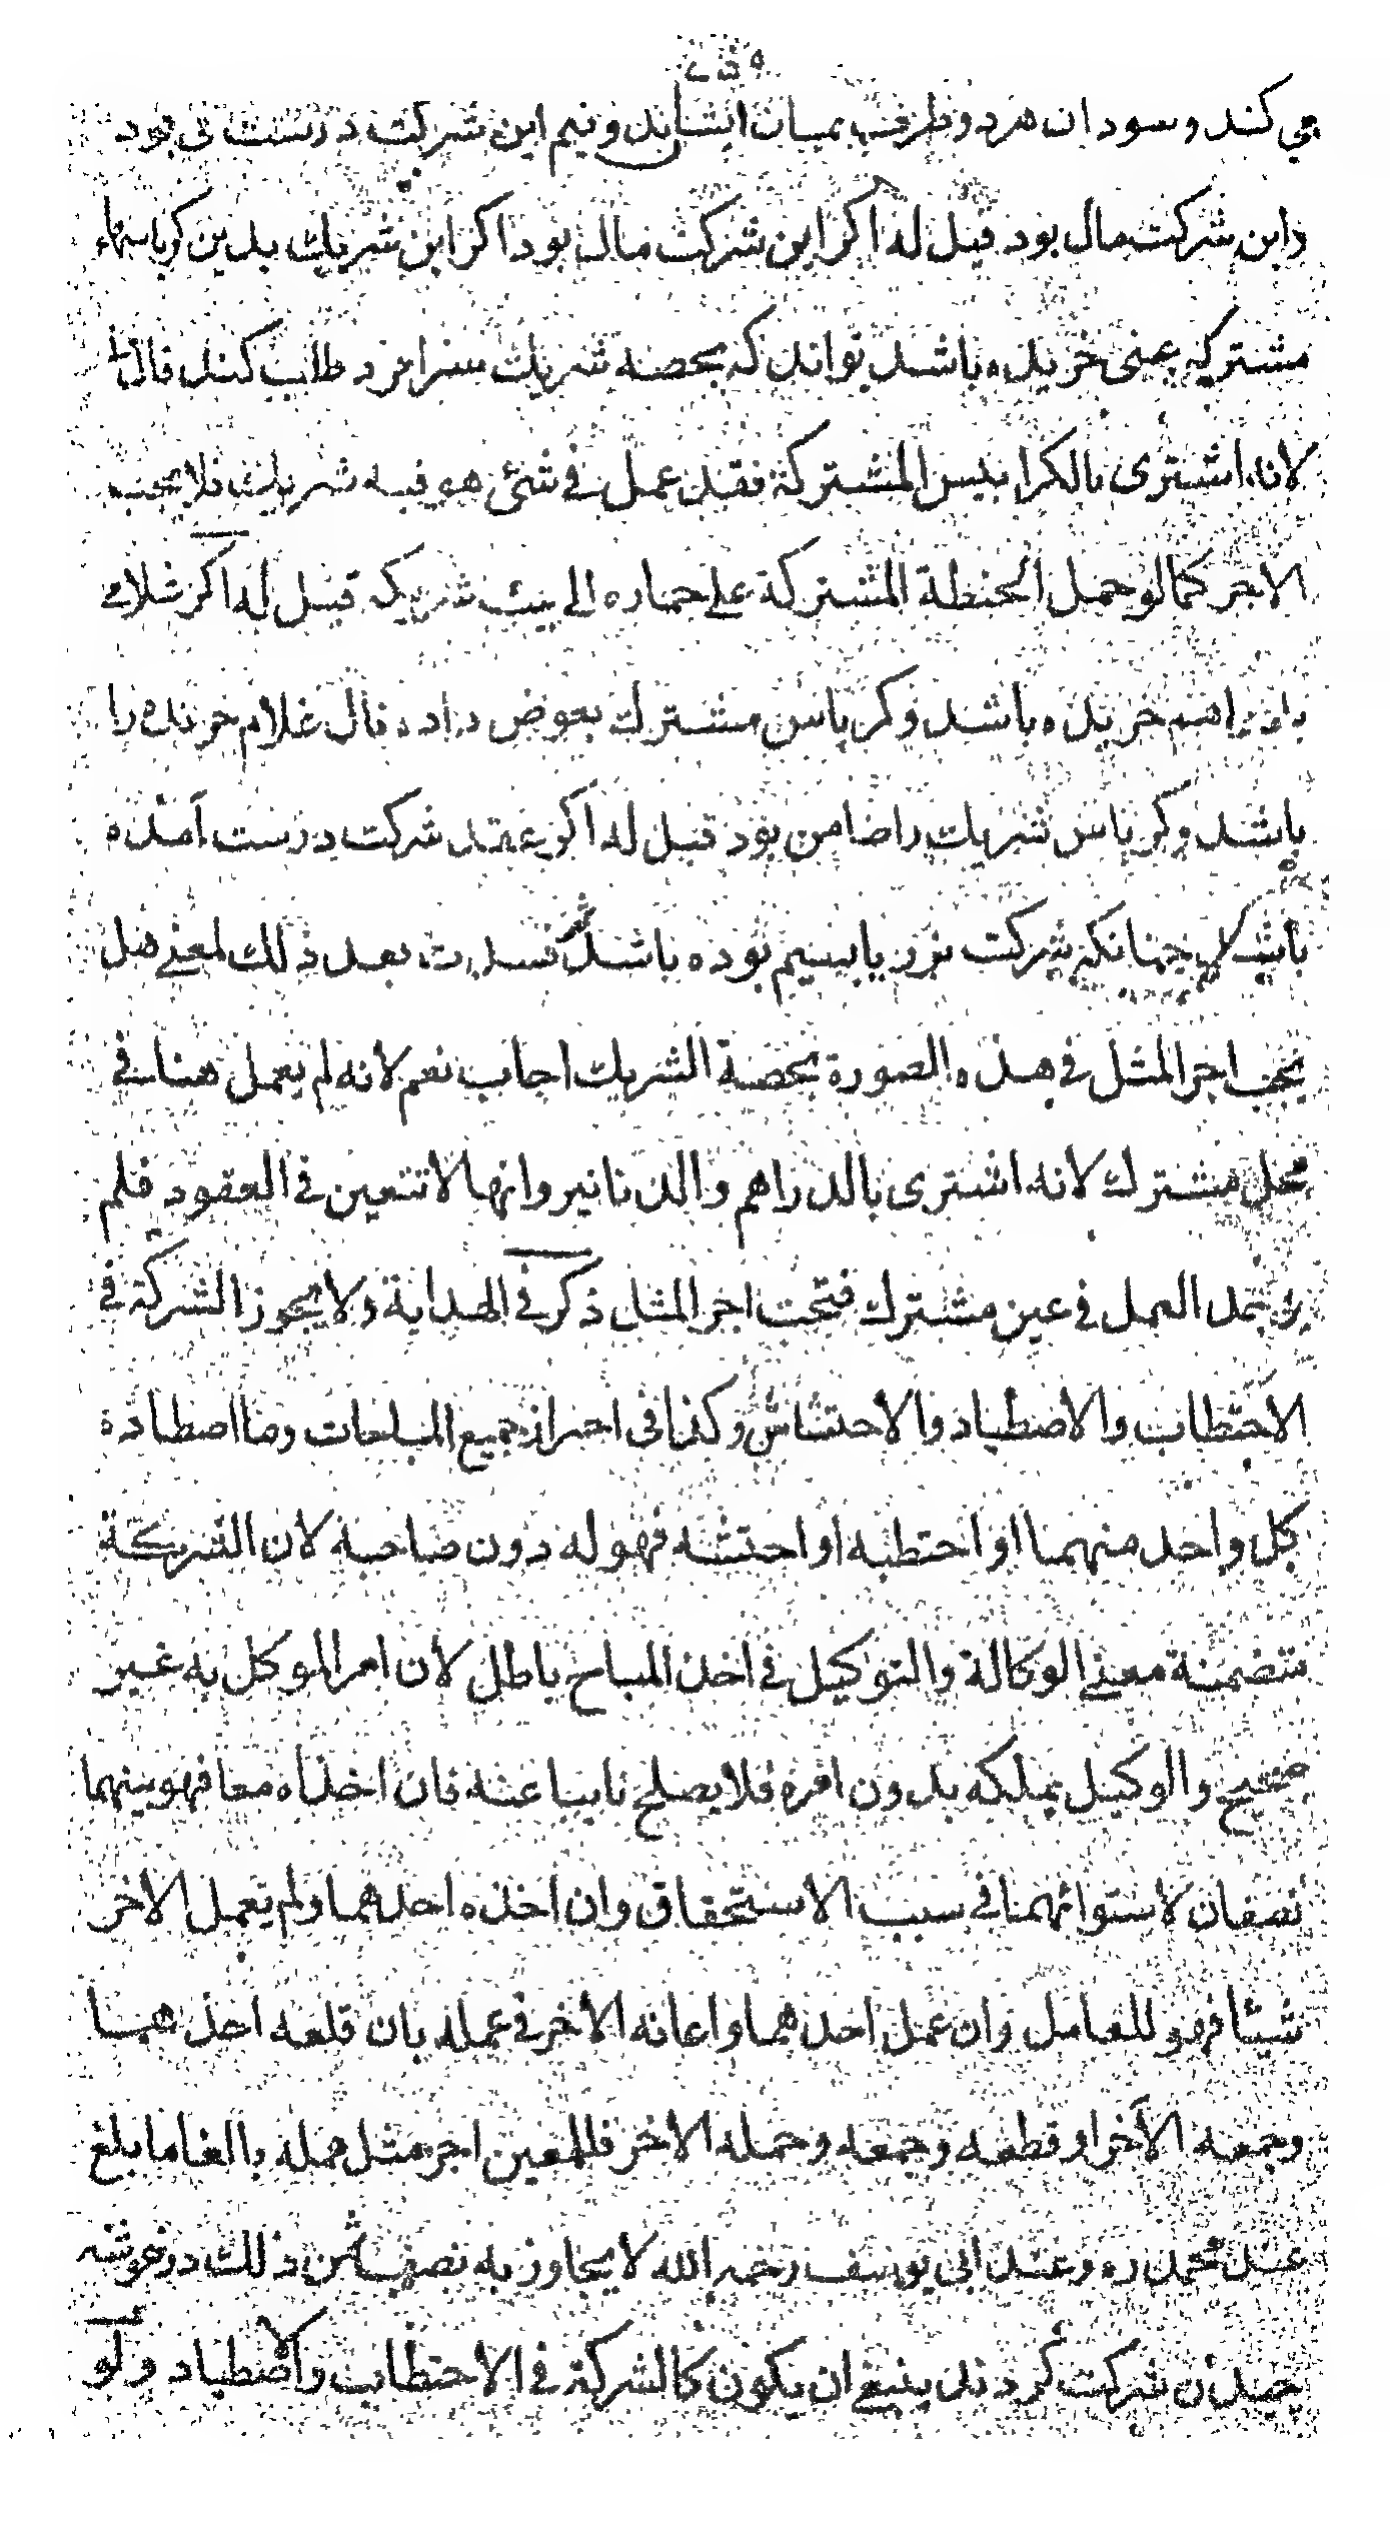 می کند و سود ان هر دو طرف بمیان ایشان بدو نیم این شرکت درست نی بود
و این شرکت مال بود قیل له اکر این شرکت مال بود اکر این شریک بدین کرباسهاء
مشترکه عینی خریده باشد تواند که بحصه شریک سزا مزد طلب کند قال لا
لانه اشتری بالکرابیس المشترکة فقد عمل فی شئ هو فیه شریک فلا یجب
الاجر کما لو حمل الحنطة المشترکة علی حماره الی بیت شریکه قیل له اکر غلامی
بدراهم خریده باشد و کرباس مشترک بعوض داده قال غلام خرنده را
باشد و کرباس شریک را ضامن بود قیل له اکر عقد شرکت درست آمده
باشد چنانکه شرکت بزر یا بسیم بوده باشد بعد ذلك لمعنی هل
یجب اجر المثل فی هذه الصورة بحصة الشریك اجاب نعم لانه لم یعمل هنا فی
محل مشترك لانه اشتری بالدراهم والدنانیر وانها لا تتعین فی العقود فلم
یوجد العمل فی عین مشترك فتجب اجر المثل ذکر فی الهدایة ولا یجوز الشرکة فی
الاحتطاب والاصطیاد والاحتشاش وکذا فی احراز جمیع المباحات وما اصطاده
کل واحد منهما او احتطبه او احتشه فهو له دون صاحبه لان الشرکة
متضمنة معنی الوکالة والتوکیل فی اخذ المباح باطل لان امر الموکل به غیر
صحیح والوکیل یملکه بدون امره فلا یصلح نایبا عنه فان اخذاه معا فهو بینهما
نصفان لاستوائهما فی سبب الاستحقاق وان اخذه احدهما ولم یعمل الاخر
شیئا فهو للعامل وان عمل احدهما واعانه الاخر فی عمله بان قلعه احدهما
وجمعه الآخر او قطعه وجمعه وحمله الاخر فللمعین اجر مثل عمله بالغا ما بلغ
عند محمد ره وعند ابی یوسف رحمه الله لا یجاوز به نصف ثمن ذلك در خوشه
چیدن شرکت کردند ینبغی ان یکون کالشرکة فی الاحتطاب والاصطیاد ولو